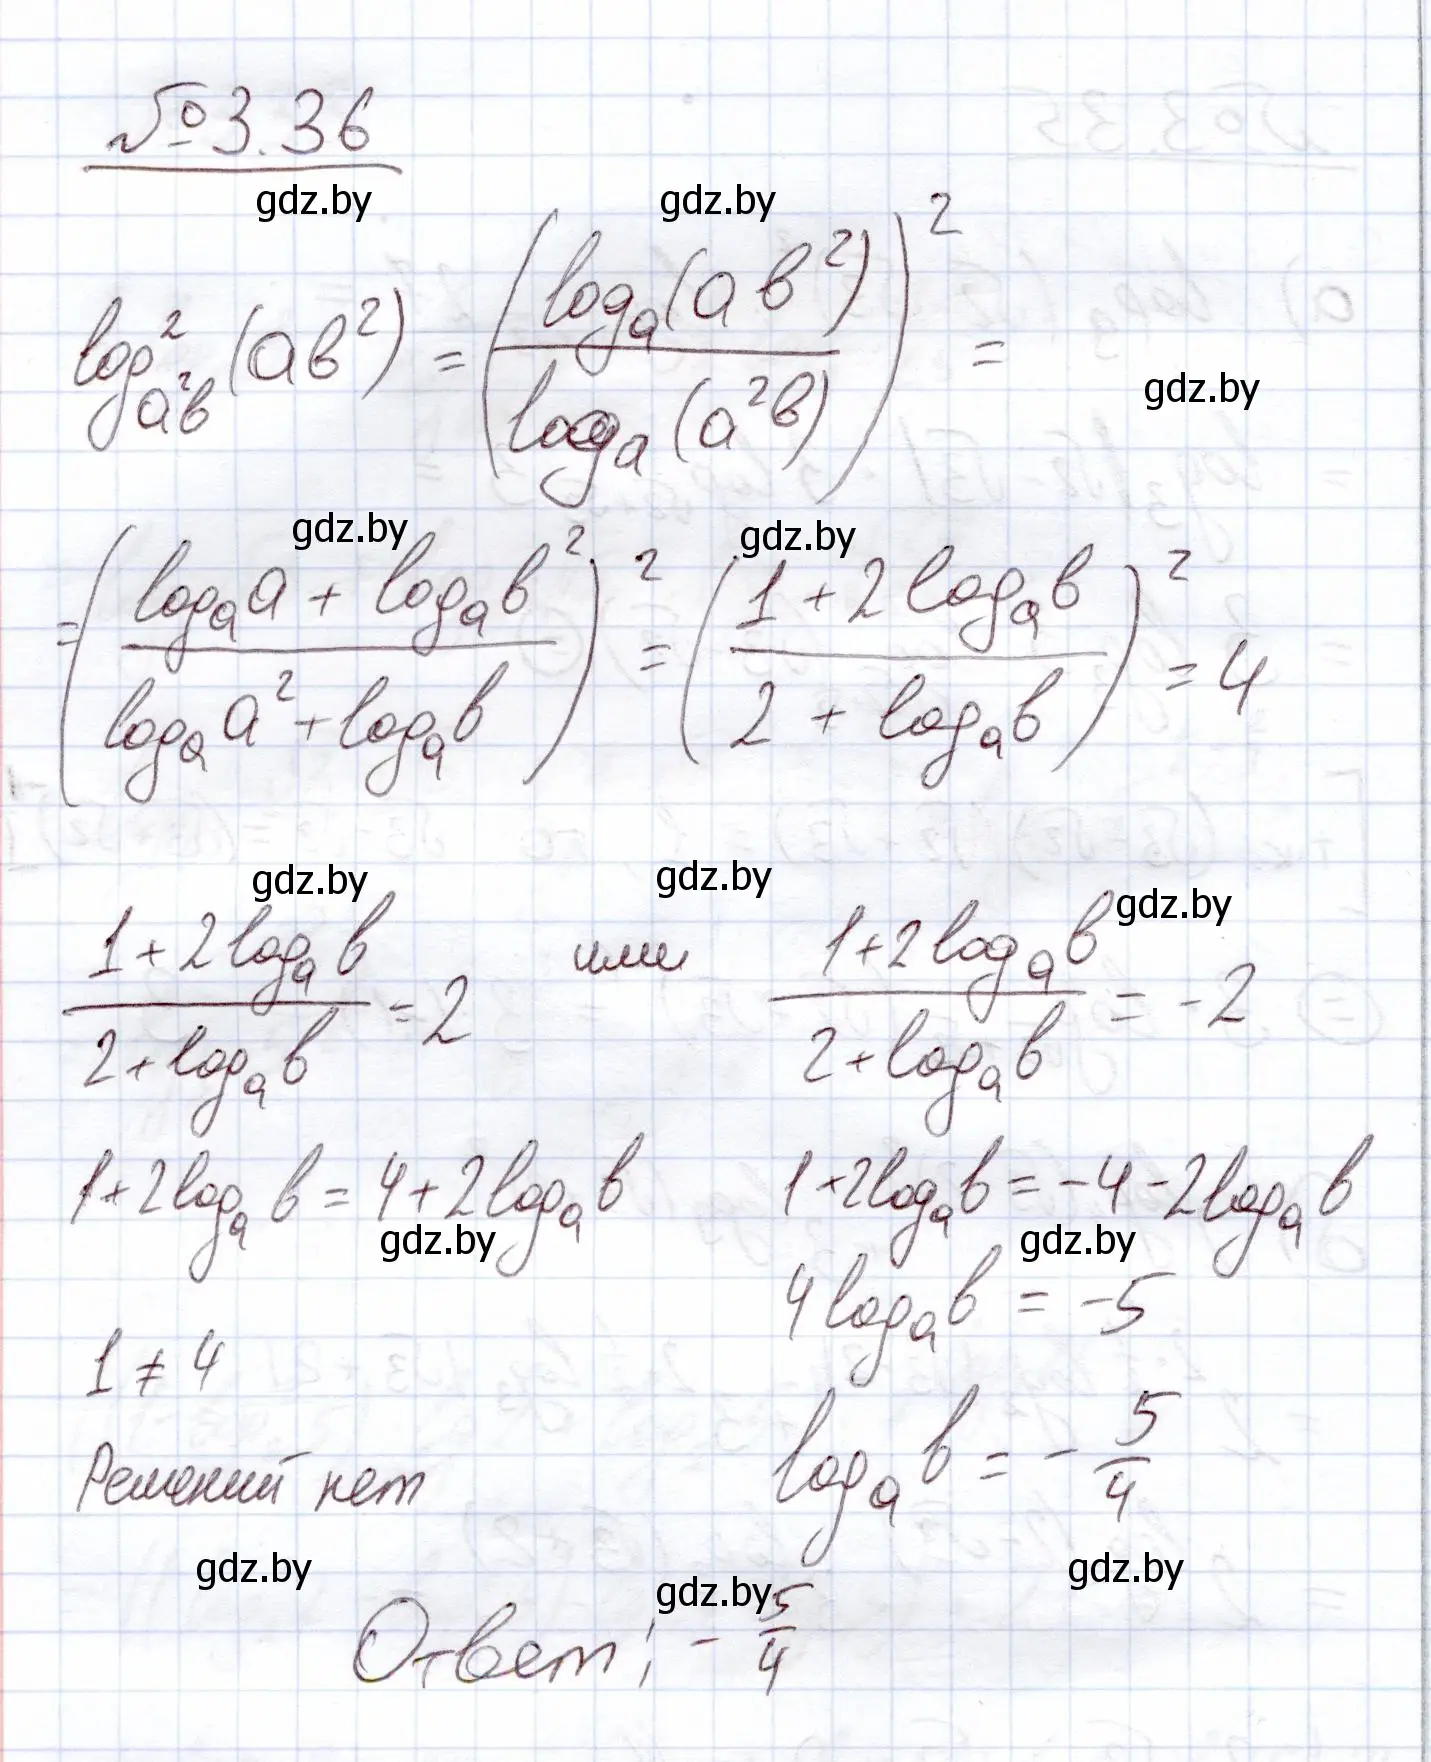 №3.36
gdz.by gdz.by
log²_{a²b}(ab²) = (log_a(ab²) / log_a(a²b))² =
gdz.by
gdz.by gdz.by
= ((log_a a + log_a b²) / (log_a a² + log_a b))² = ((1 + 2 log_a b) / (2 + log_a b))² = 4
gdz.by gdz.by gdz.by
(1 + 2 log_a b) / (2 + log_a b) = 2 или (1 + 2 log_a b) / (2 + log_a b) = -2
1 + 2 log_a b = 4 + 2 log_a b 1 + 2 log_a b = -4 - 2 log_a b
gdz.by gdz.by
4 log_a b = -5
1 ≠ 4
log_a b = -5/4
Решений нет
gdz.by gdz.by gdz.by
Ответ: -5/4